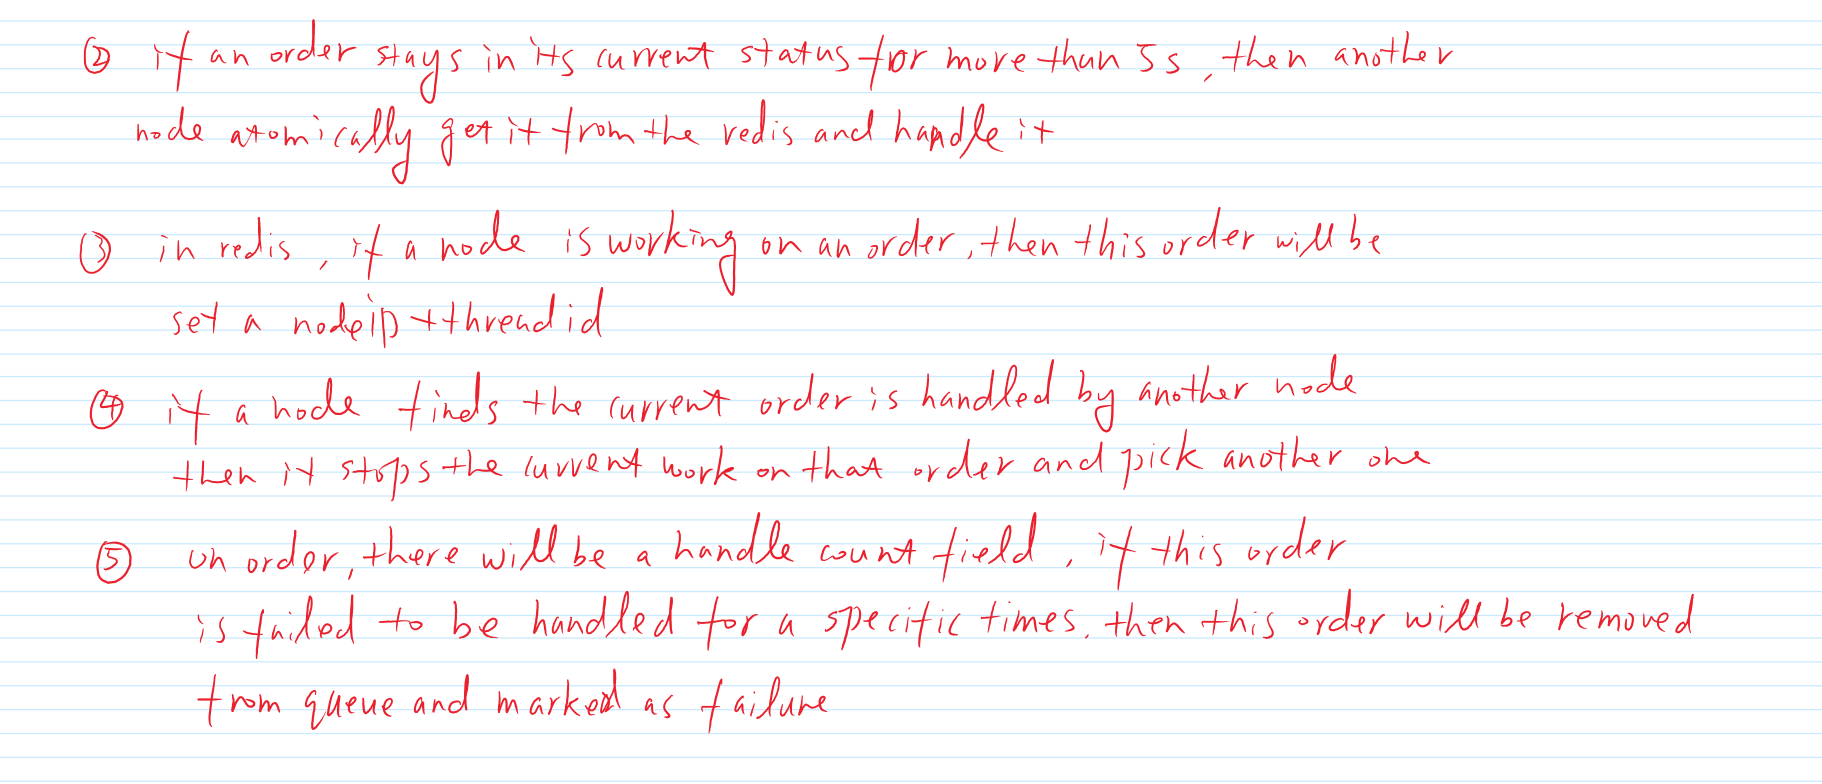 ② if an order stays in its current status for more than 5s, then another
node atomically get it from the redis and handle it
③ in redis, if a node is working on an order, then this order will be
set a nodeip+threadid
④ if a node finds the current order is handled by another node
then it stops the current work on that order and pick another one
⑤ on order, there will be a handle count field, if this order
is failed to be handled for a specific times, then this order will be removed
from queue and marked as failure